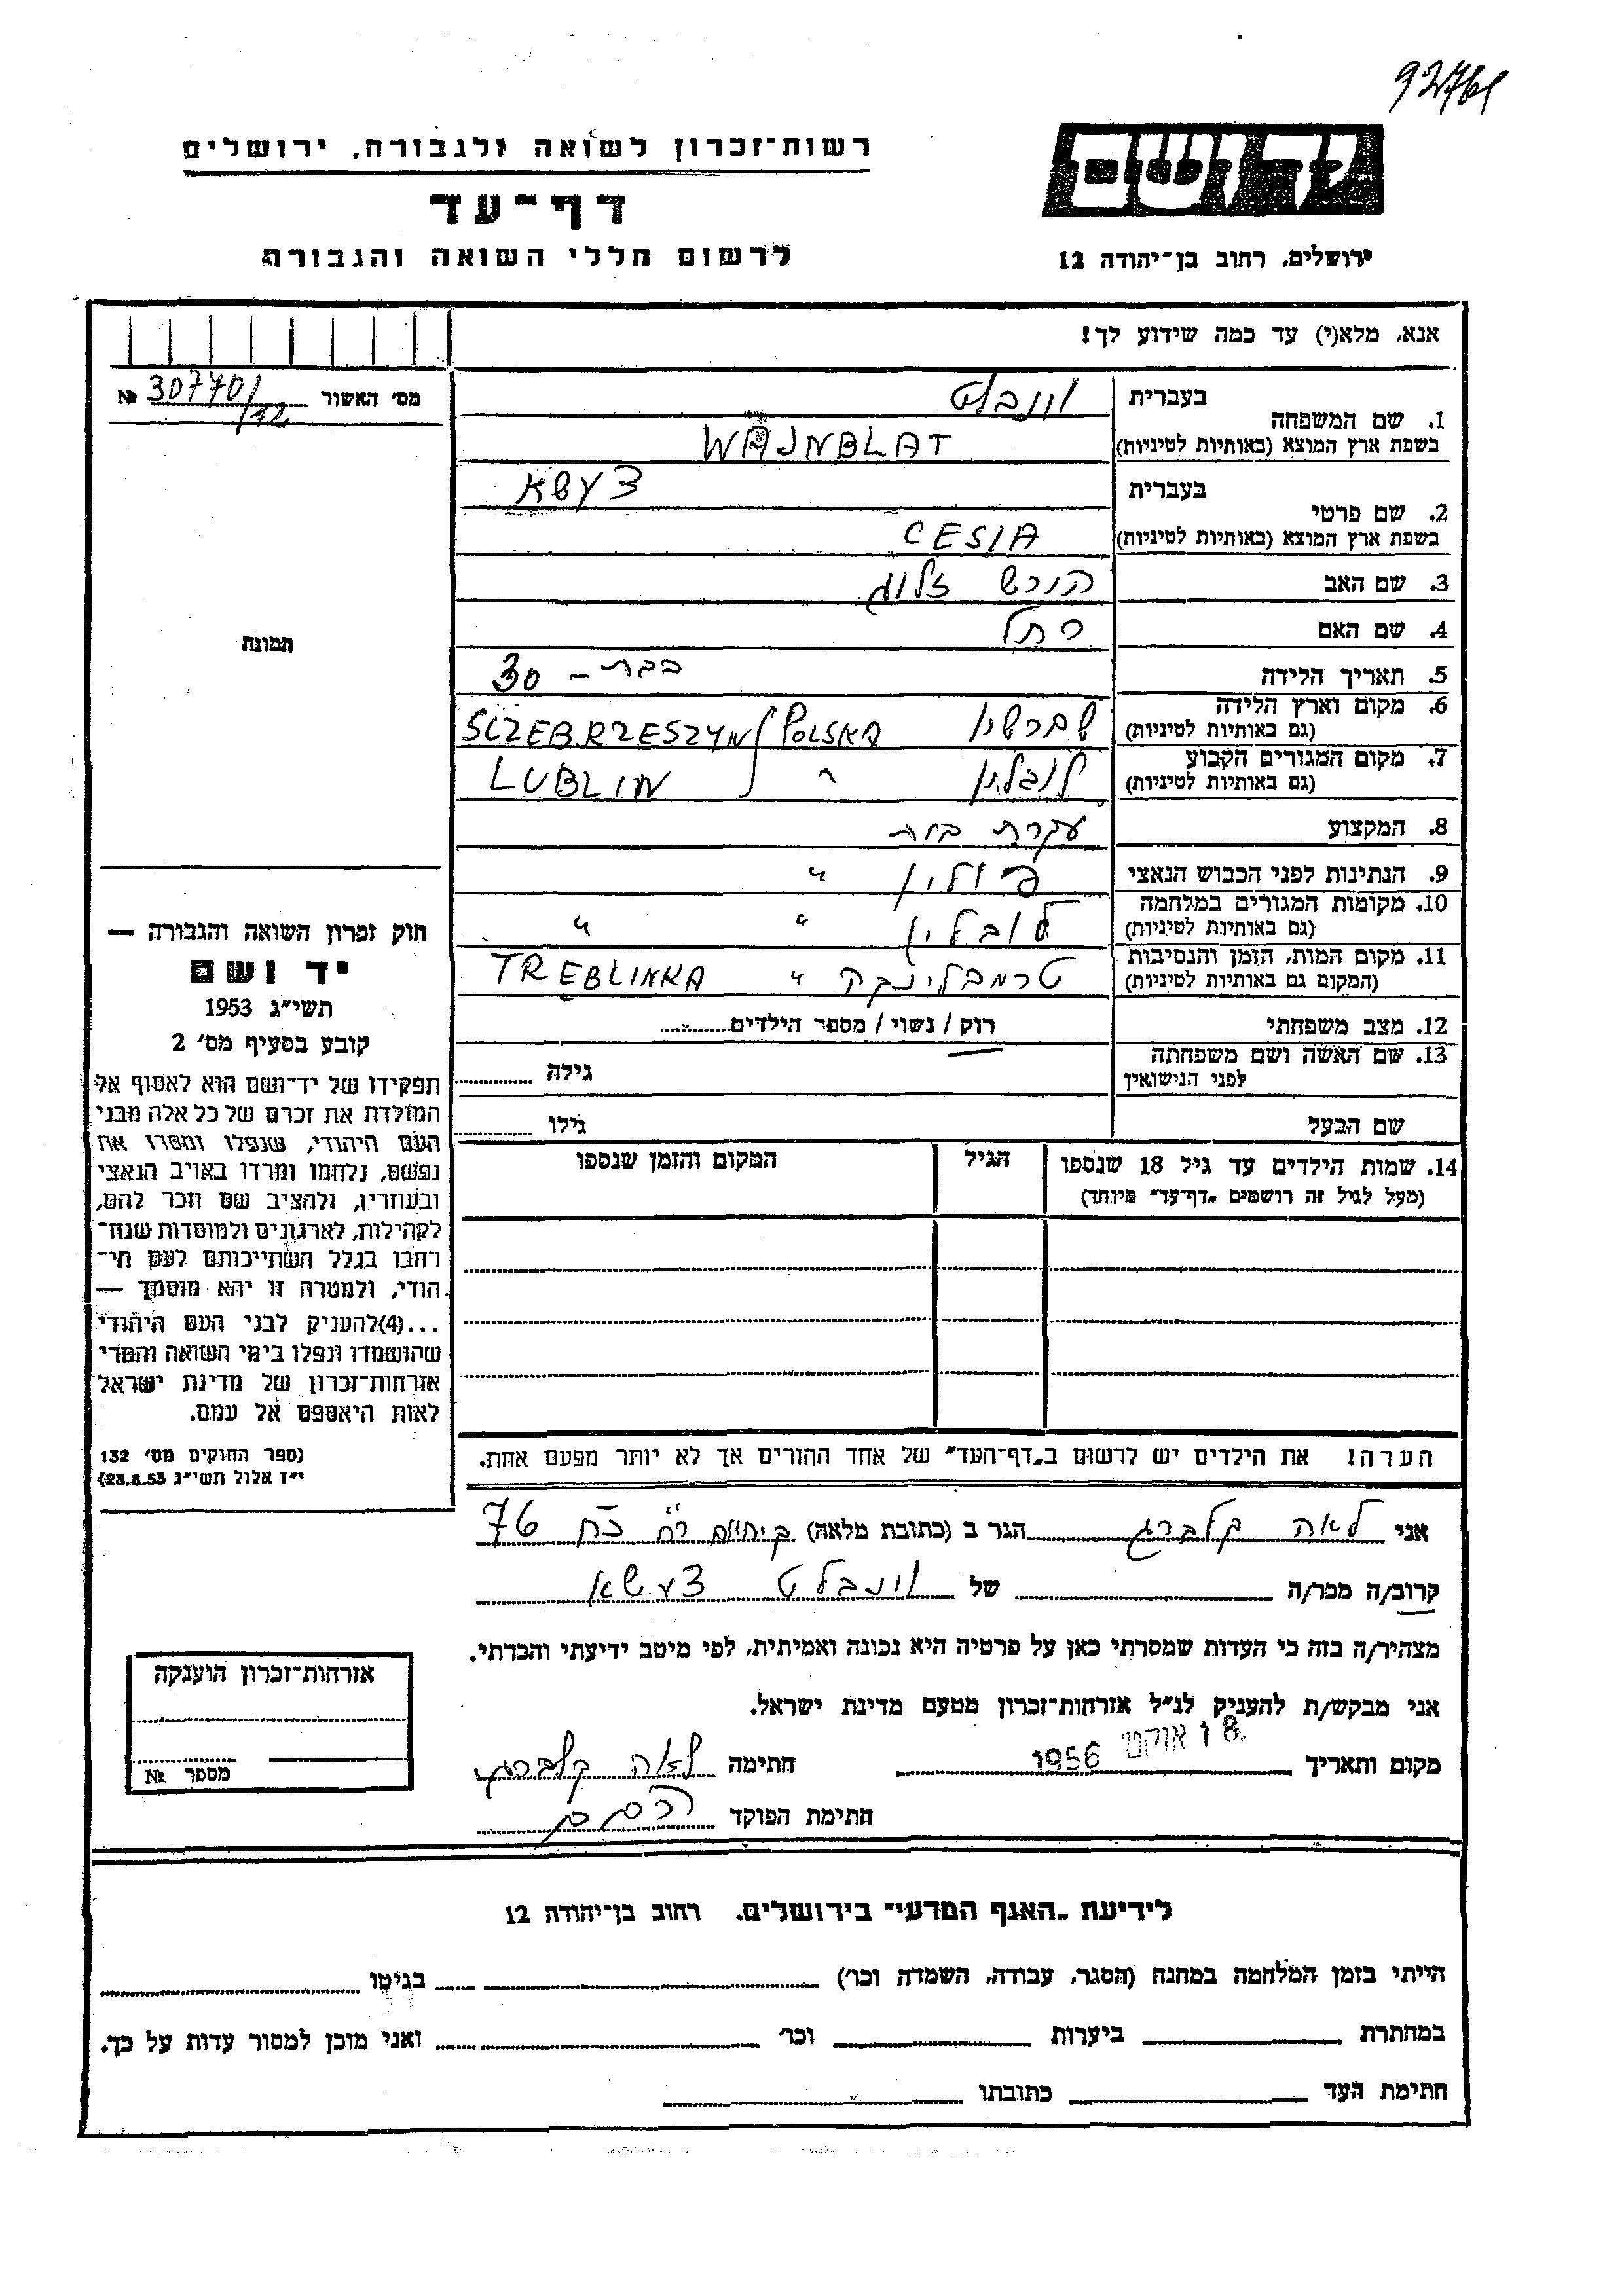 92761
רשות־זכרון לשואה ולגבורה, ירושלים
דף־עד
לרשום חללי השואה והגבורה
ידושם
ירושלים, רחוב בן־יהודה 12
אנא, מלא(י) עד כמה שידוע לך!
מס׳ האשור 30770/12 №
1. שם המשפחה
בעברית וינבלט
בשפת ארץ המוצא (באותיות לטיניות) WAJNBLAT
2. שם פרטי
בעברית צעשא
בשפת ארץ המוצא (באותיות לטיניות) CESIA
3. שם האב הירש זליג
4. שם האם רחל
5. תאריך הלידה בבת - 30
6. מקום וארץ הלידה
(גם באותיות לטיניות) שברשין SCZEBRZESZYN / POLSKA
7. מקום המגורים הקבוע
(גם באותיות לטיניות) לובלין " LUBLIN
8. המקצוע עקרת בית
9. הנתינות לפני הכבוש הנאצי פולין "
10. מקומות המגורים במלחמה
(גם באותיות לטיניות) לובלין " "
11. מקום המות, הזמן והנסיבות
(המקום גם באותיות לטיניות) טרמבלינקה " TREBLINKA
12. מצב משפחתי רוק / נשוי / מספר הילדים
13. שם האשה ושם משפחתה
לפני הנישואין גילה
שם הבעל גילו
14. שמות הילדים עד גיל 18 שנספו
(מעל לגיל זה רושמים „דף־עד" מיוחד)
הגיל
המקום והזמן שנספו
הערה! את הילדים יש לרשום ב„דף־העד" של אחד ההורים אך לא יותר מפעם אחת.
תמונה
חוק זכרון השואה והגבורה —
יד ושם
תשי״ג 1953
קובע בסעיף מס׳ 2
תפקידו של יד־ושם הוא לאסוף אל
המולדת את זכרם של כל אלה מבני
העם היהודי, שנפלו ומסרו את
נפשם, נלחמו ומרדו באויב הנאצי
ובעוזריו, ולהציב שם וזכר להם,
לקהילות, לארגונים ולמוסדות שנח־
רחבו בגלל השתייכותם לעם הי־
הודי, ולמטרה זו יהא מוסמך —
...(4)להעניק לבני העם היהודי
שהושמדו ונפלו בימי השואה והמרי
אזרחות־זכרון של מדינת ישראל
לאות היאספם אל עמם.
(ספר החוקים מס׳ 132
י״ז אלול תשי״ג 28.8.53)
אני לאה קלברג הגר ב (כתובת מלאה) 76
קרוב/ה מכר/ה של וינבלט צעשא
מצהיר/ה בזה כי העדות שמסרתי כאן על פרטיה היא נכונה ואמיתית, לפי מיטב ידיעתי והכרתי.
אני מבקש/ת להעניק לנ״ל אזרחות־זכרון מטעם מדינת ישראל.
מקום ותאריך 18 אוקט 1956 חתימה לאה קלברג
חתימת הפוקד
אזרחות־זכרון הוענקה
מספר №
לידיעת „האגף המדעי" בירושלים, רחוב בן־יהודה 12
הייתי בזמן המלחמה במחנה (הסגר, עבודה, השמדה וכו׳) בגיטו
במחתרת ביערות וכו׳ ואני מוכן למסור עדות על כך.
חתימת העד כתובתו